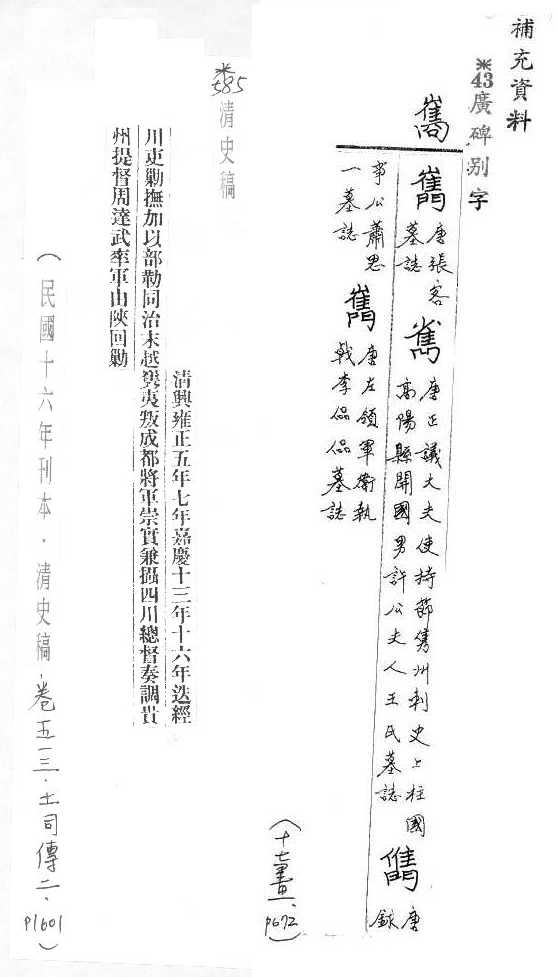 補充資料
※43廣碑別字
唐張客
墓誌
唐正議大夫使持節雋州刺史上柱國
高陽縣開國男許公夫人王氏墓誌
唐
錄
事公蕭思
一墓誌
唐左領軍衛執
戟李偘偘墓誌
(十七畫.p672)
※585
清史稿
清興雍正五年七年嘉慶十三年十六年迭經
川吏勦撫加以部勒同治末越巂夷叛成都將軍崇實兼攝四川總督奏調貴
州提督周達武率軍由陝回勦
(民國十六年刊本．清史稿．卷五一三．土司傳二．p1601)